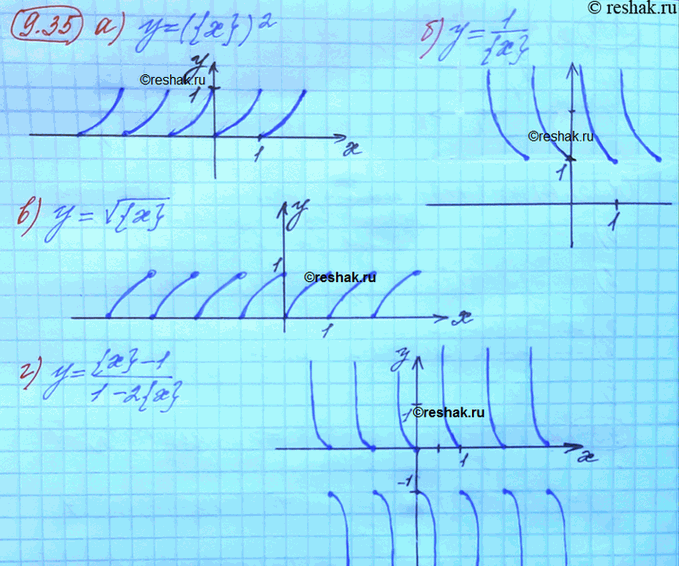 © reshak.ru
9.35 а) y=({x})²
y
1
©reshak.ru
1
x
б) y=1/{x}
©reshak.ru
1
1
в) y=√{x}
y
1
©reshak.ru
1
x
г) y=({x}-1)/(1-2{x})
y
1
©reshak.ru
1
x
-1